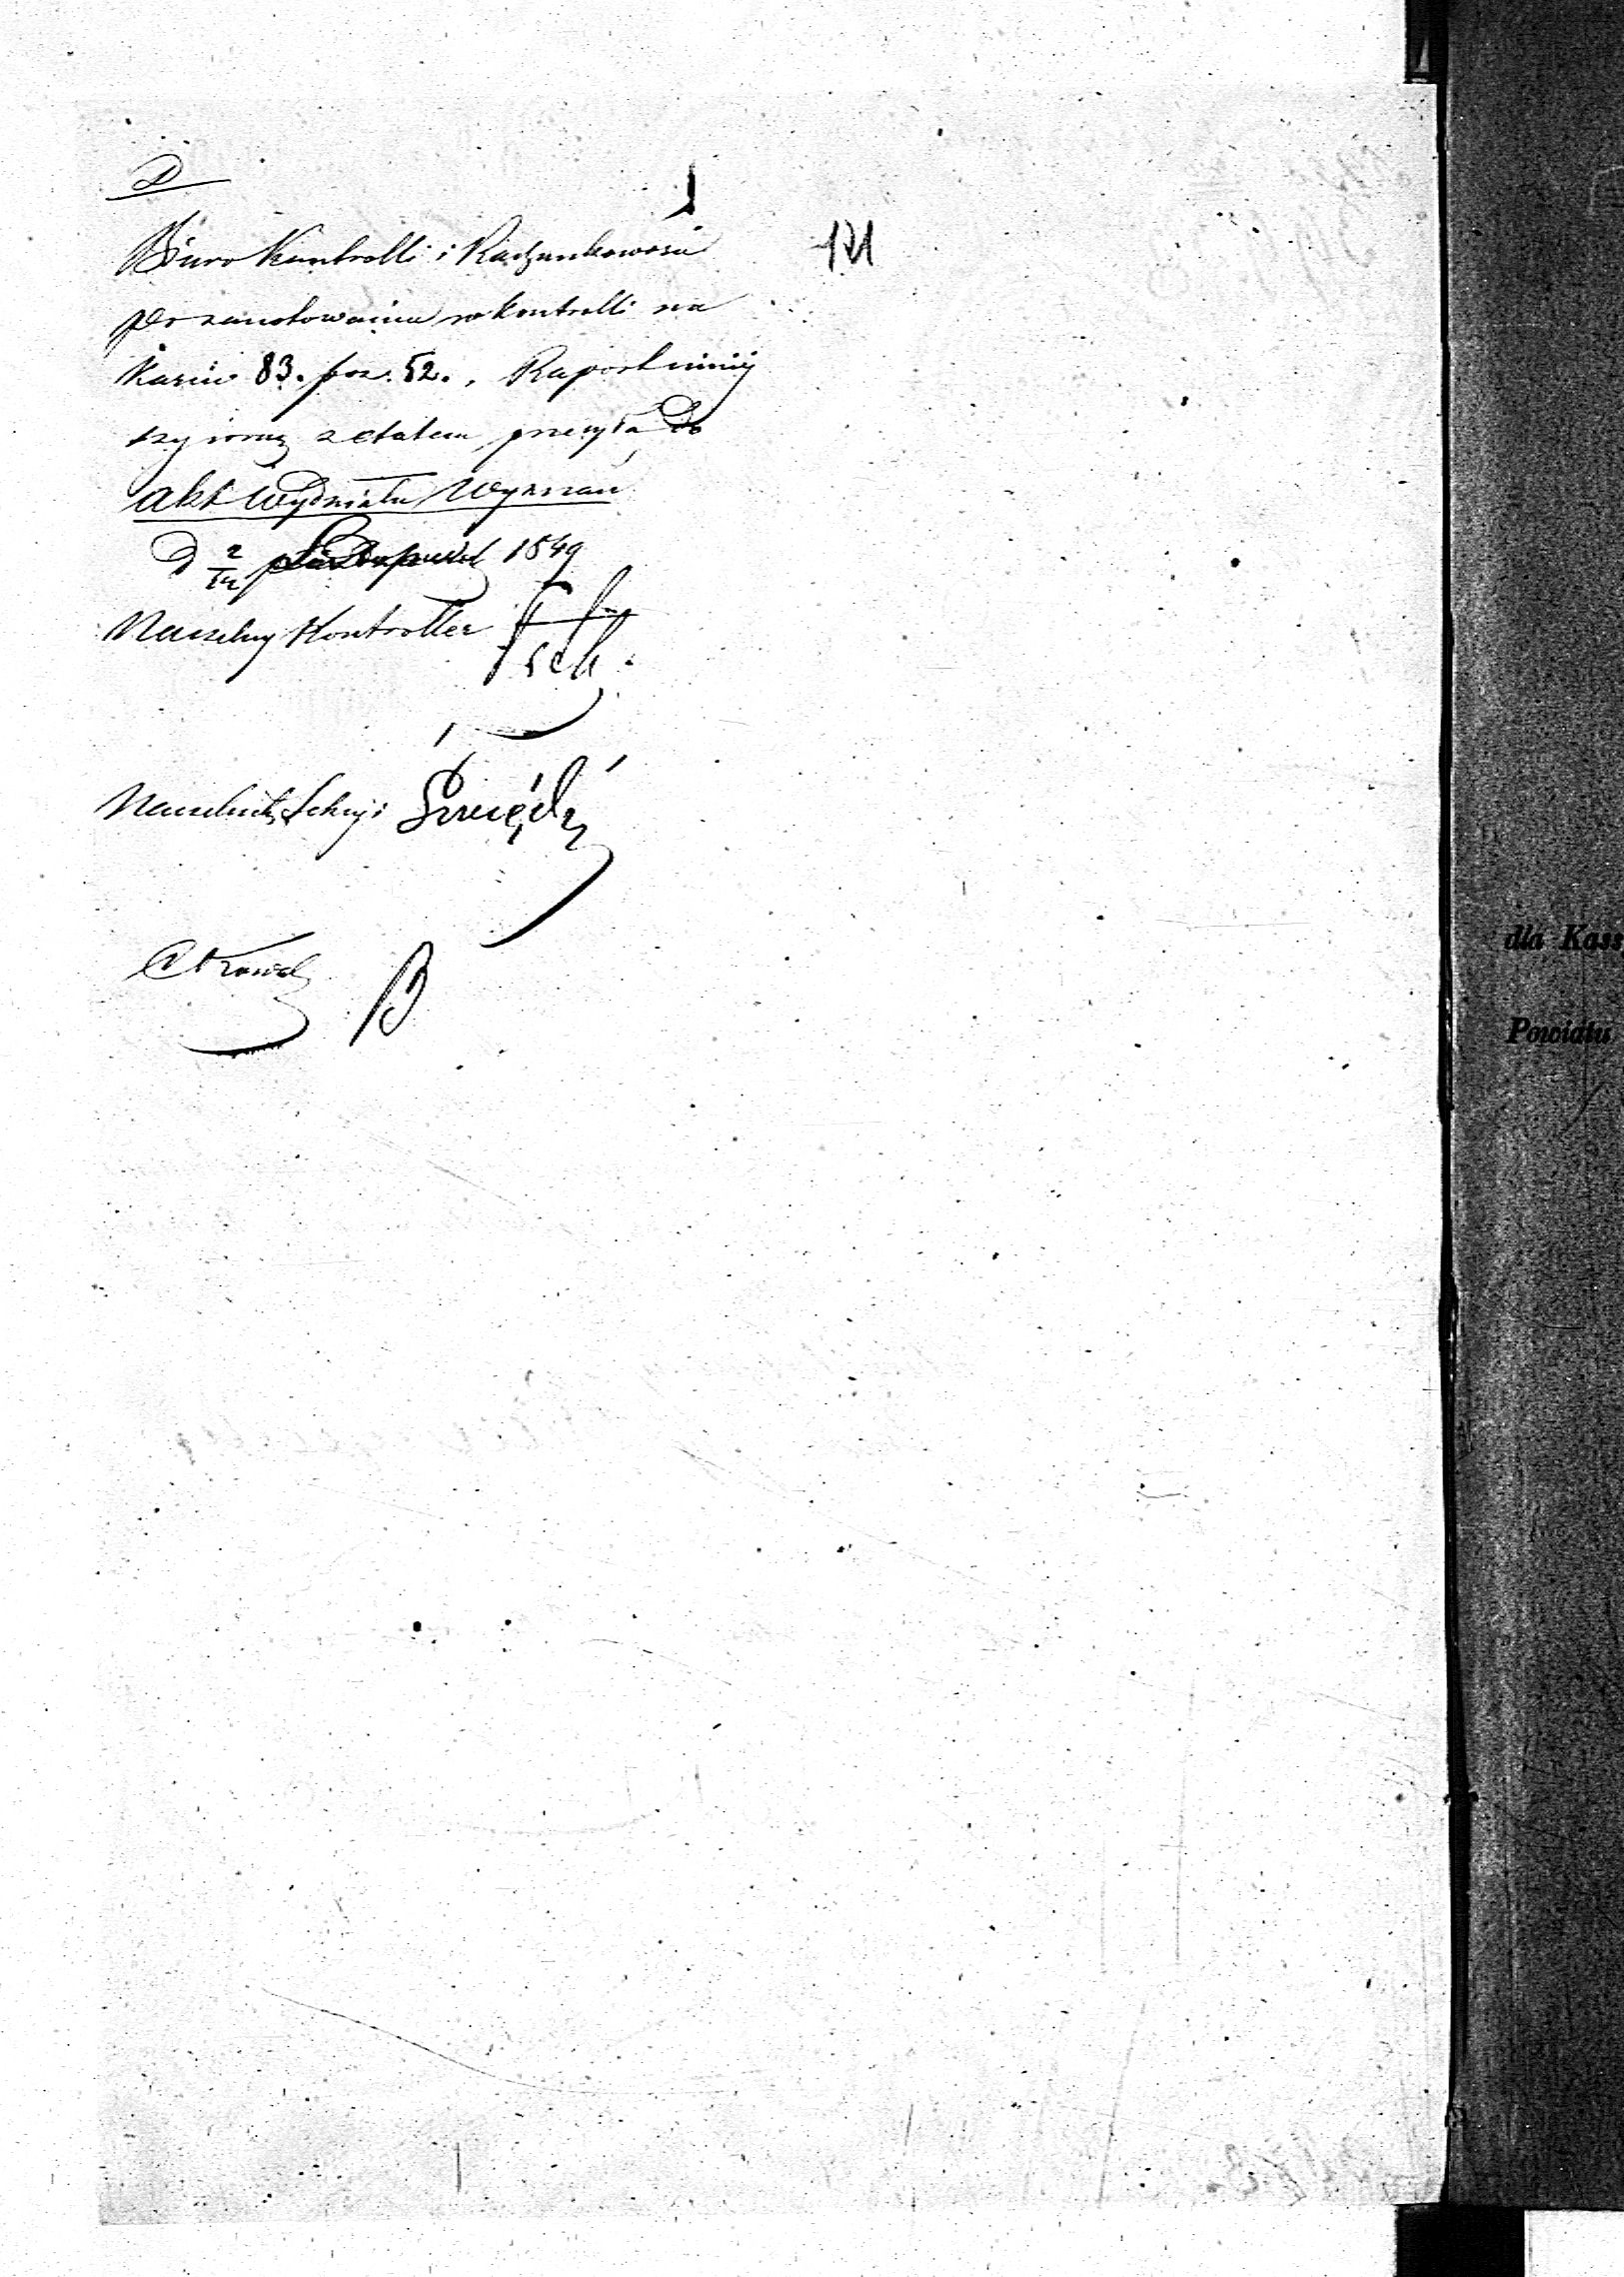 D
121
Biuro Kontrolli i Rachunkowości
po zanotowaniu w kontrolli na
karcie 83. poz. 52., Raport niniej
szy wraz z etatem przesyła do
Akt Wydziału Wyznań
D 2/14 1849
Naczelny Kontroller
Naczelnik Sekcyi
B
dla Kass
Powiatu